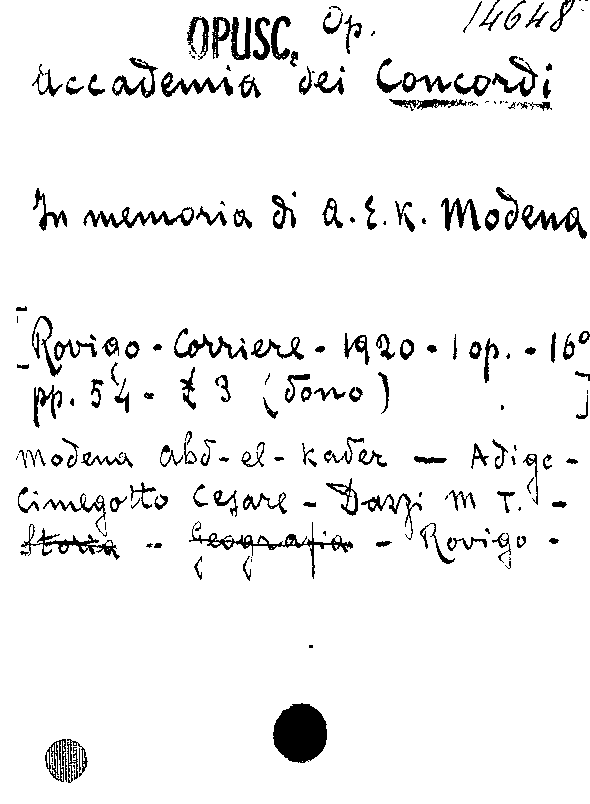 OPUSC. Op. 14648
Accademia dei Concordi
In memoria di A. E. K. Modena
[Rovigo - Corriere - 1920 - 1 op. - 16°
pp. 54 - £ 3 (dono) ]
Modena Abd-el-Kader — Adige -
Cimegotto Cesare - Dazzi M T. -
Storia - Geografia - Rovigo -